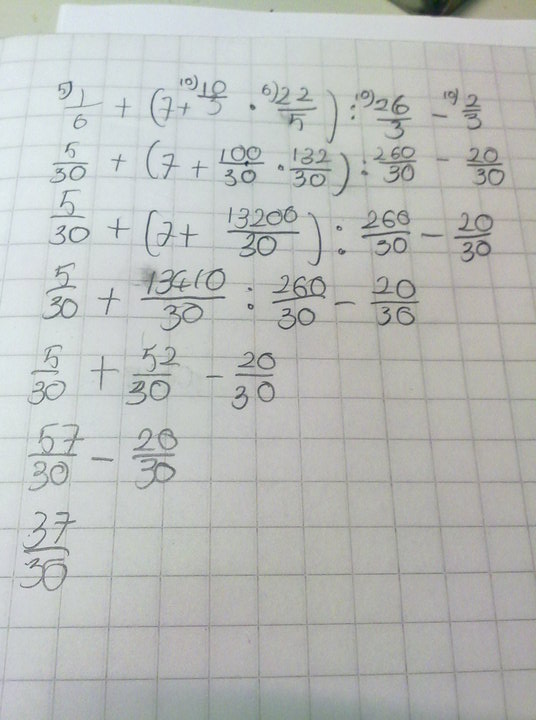 5) 1/6 + (7 + 10) 10/3 · 6) 22/5) : 10) 26/3 - 10) 2/3
5/30 + (7 + 100/30 · 132/30) : 260/30 - 20/30
5/30 + (7 + 13200/30) : 260/30 - 20/30
5/30 + 13410/30 : 260/30 - 20/30
5/30 + 52/30 - 20/30
57/30 - 20/30
37/30